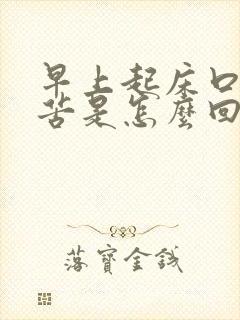 早上起床口
苦是怎麼回
落寶金錢